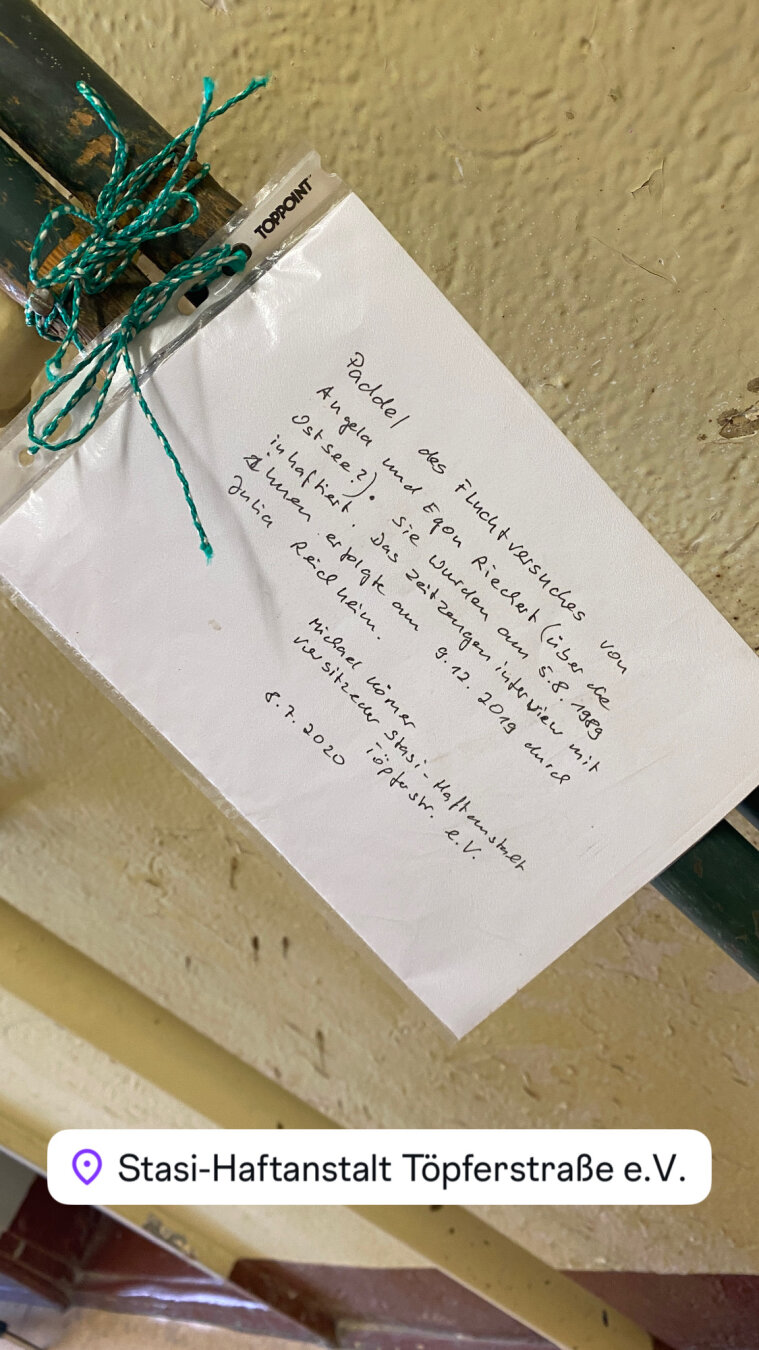 TOPPOINT
Paddel des Fluchtversuches von
Angela und Egon Riechert (über die
Ostsee?). Sie wurden am 5.8.1989
inhaftiert. Das Zeitzeugeninterview mit
Ihnen erfolgte am 9.12.2019 durch
Julia Reichheim.
Michael Körner
Vorsitzeder Stasi-Haftanstalt
Töpferstr. e.V.
8.7.2020
Stasi-Haftanstalt Töpferstraße e.V.